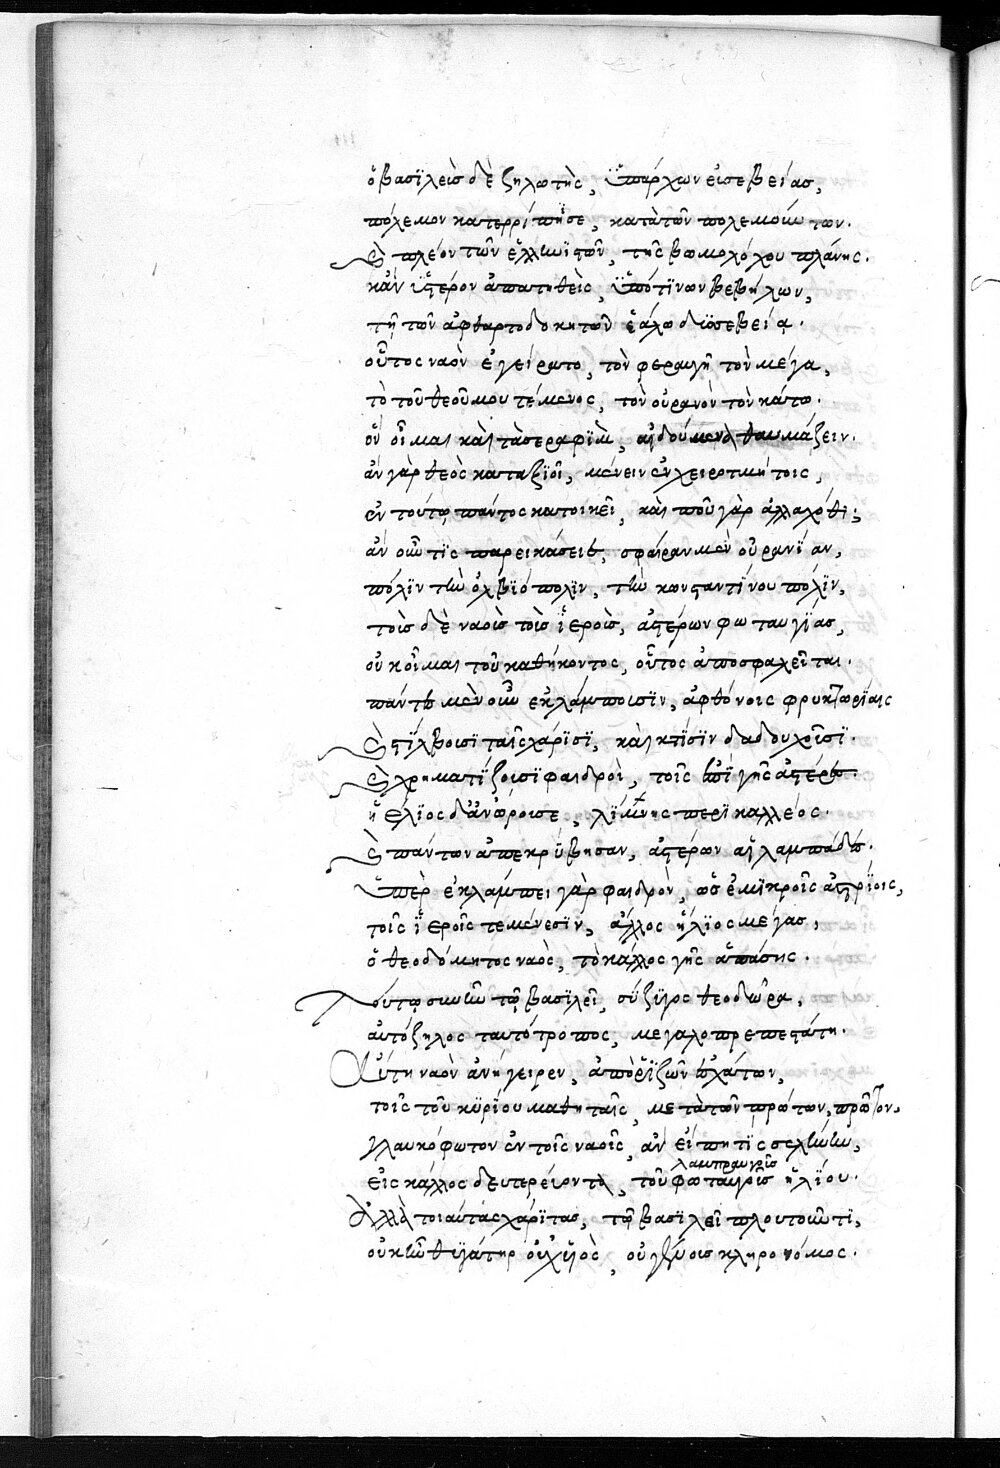 ὁ βασϊλεὺς δὲ ζηλωτὴς, ὑπάρχων εὐσεβείας,
πόλεμον κατερρίπησε, κατὰ τῶν πολεμούντων.
Ὃ πλέον τῶν ἑλλήνων, τῆς βωμολόχου πλάνης.
κἂν ὕστερον ἀπατηθεὶς, ὑπό τϊνων βεβήλων,
τῇ τῶν ἀφθαρτοδοκητῶν ἑάλω δϋσσεβείᾳ.
οὗτος ναὸν ἐγείρατο, τὸν φεραυγῆ τὸν μέγα,
τὸ τοῦ θεοῦ μου τέμενος, τὸν οὐρανὸν τὸν κάτω.
ὃν οἶμαι καὶ τὰ σεραφὶμ, αἰδούμενα θαυμάζειν.
ἂν γὰρ θεὸς καταξϊοῖ, μένειν ἐν χειροτμήτοις,
ἐν τούτῳ πάντως κατοικεῖ, καὶ ποῦ γὰρ ἀλλαχόθι;
ἂν οὖν τϊς παρεικάσειε, σφαῖραν μὲν οὐρανίαν,
πόλϊν τὴν ὀλβϊόπολϊν, τὴν κωνσταντίνου πόλϊν,
τοῖς δὲ ναοῖς τοῖς ἱεροῖς, ἀστέρων φωταυγίας,
οὐκ οἶμαι τοῦ καθήκοντος, οὗτος ἀποσφαλεῖται.
πάντες μὲν οὖν ἐκλάμποισϊν, ἀφθόνοις φρυκτωρίαις
Ὃ στίλβοισϊ ταῖς χάρϊσϊ, καὶ κτίσϊν δαδουχοῖσϊ.
Ὃ χρηματίζοισϊ φαιδροὶ, τοῖς ἐπὶ γῆς ἀστέρες.
ἠέλϊος δ' ἀνώροισε, λϊμνης περϊκαλλέος.
Ὃ πάντων ἀπεκρύβησαν, ἀστέρων αἱ λαμπάδες.
ὑπὲρ ἐκλάμπει γὰρ φαιδρὸν, ὡς ἐμ μϊκροῖς ἀστρίοις,
τοῖς ἱεροῖς τεμένεσϊν, ἄλλος ἥλϊος μέγας,
ὁ θεοδόμητος ναὸς, τὸ κάλλος γῆς ἁπάσης.
Τούτῳ συνῆν τῷ βασϊλεῖ, σύζϋγος θεοδώρα,
αὐτόζηλος ταυτότροπος, μεγαλοπρεπεστάτη.
Αὕτη ναὸν ἀνήγειρεν, ἀπὸ ῥϊζῶν ἐσχάτων,
τοῖς τοῦ κϋρίου μαθηταῖς, μετὰ τῶν πρώτων, πρῶτον,
γλαυκόφωτον ἐν τοῖς ναοῖς, ἂν εἴπῃ τϊς σελήνην,
λαμπραυγοῦς
εἰς κάλλος δευτερεύοντα, τοῦ φωταυγοῦς ἡλίου.
Ἀλλὰ τοιαύτας χάρϊτας, τῷ βασϊλεῖ πλουτοῦντϊ,
οὐκ ἦν θϋγάτηρ οὐχ ϋἱὸς, οὐ γνήσιος κληρονόμος.